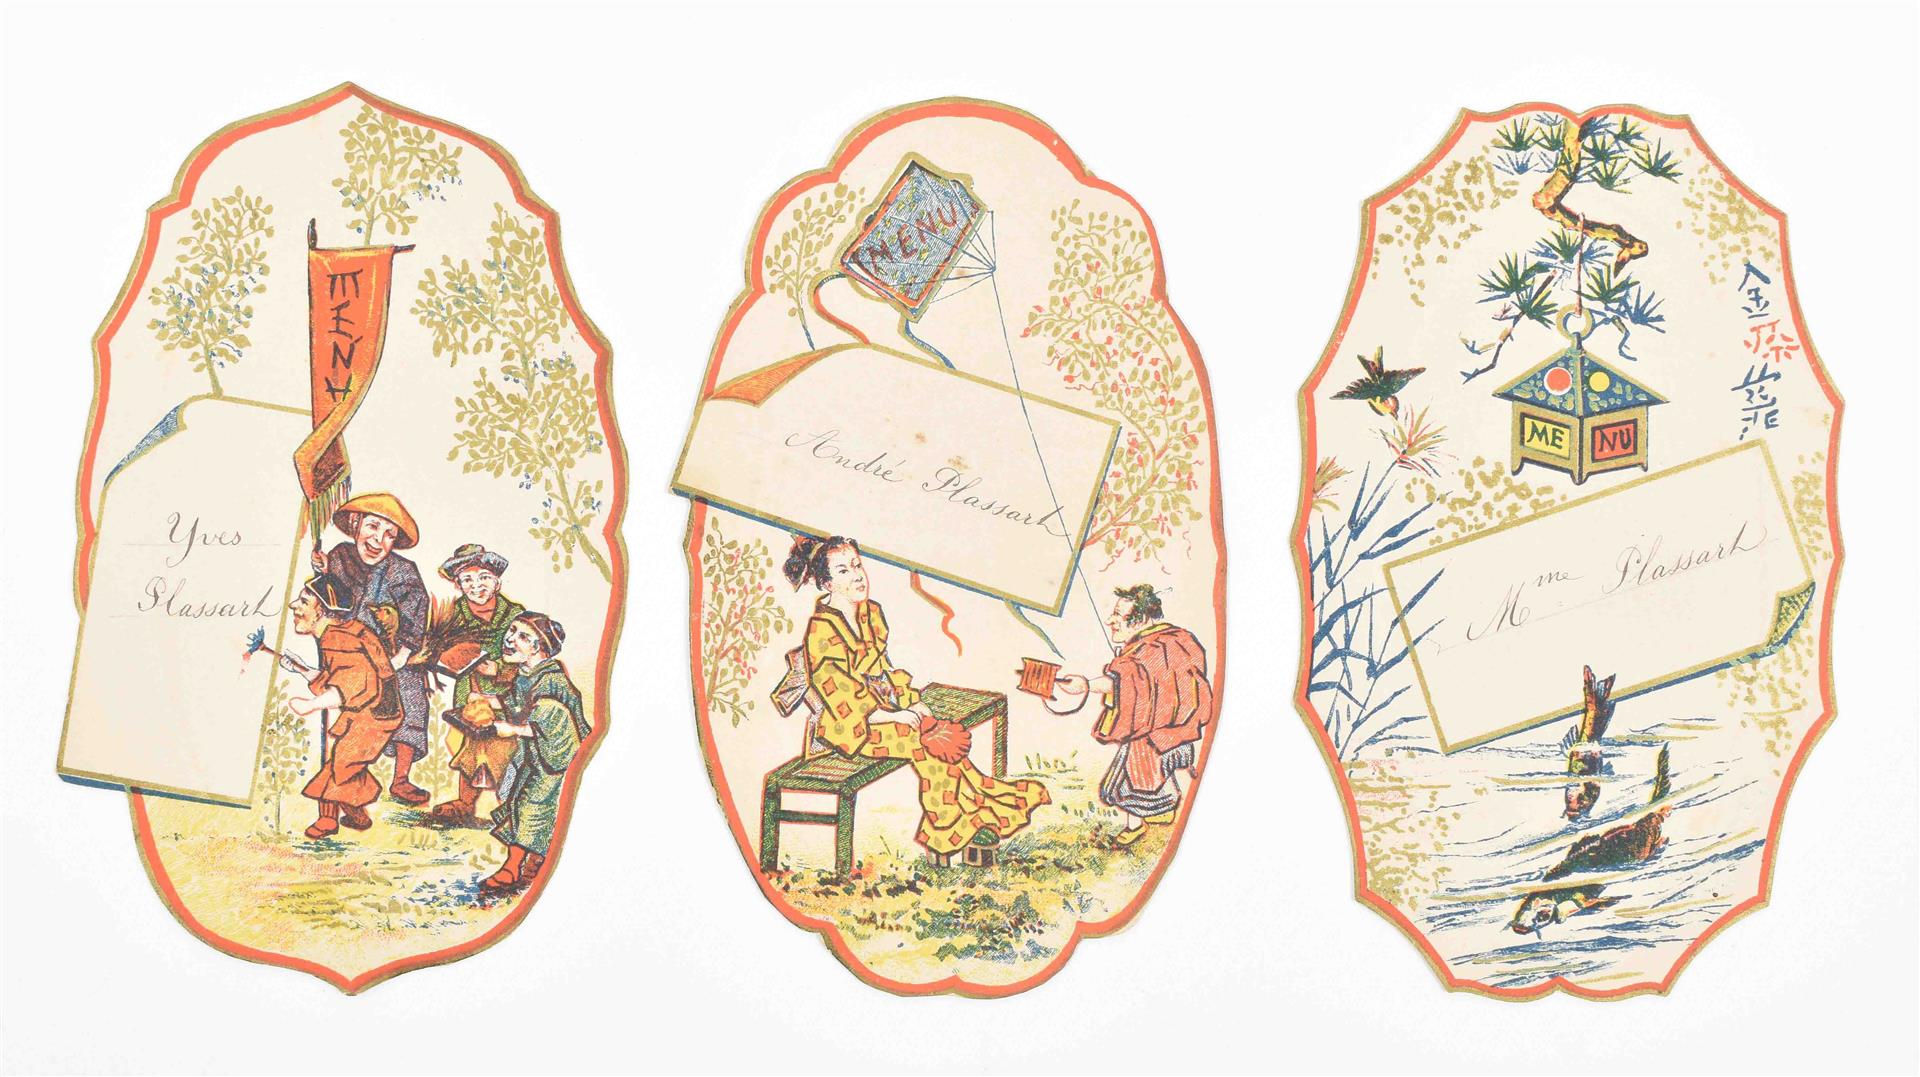 MENU
Yves
Plassart
MENU
André Plassart
ME NU
Mme Plassart
金